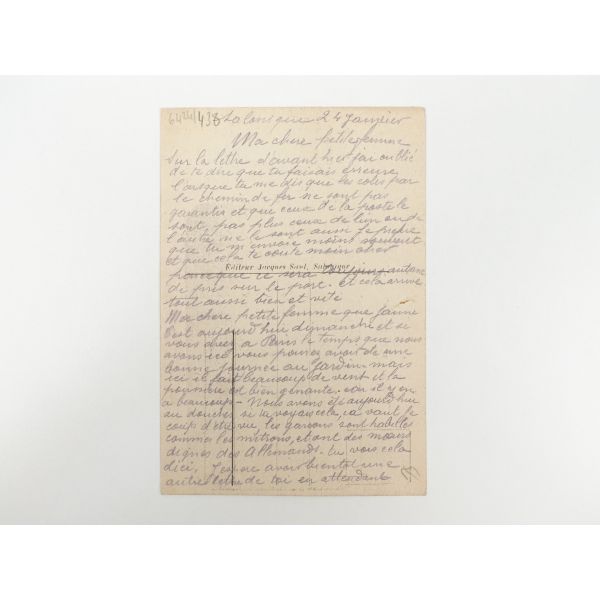 6424/438 Salonique 24 Janvier
Ma chere petite femme
Sur la lettre d'avant hier j'ai oublié
de te dire que tu faisais erreure
lorsque tu me dis que les colis par
le chemin de fer ne sont pas
garantis et que ceux de la poste le
sont, pas plus ceux de l'un ou de
l'autre ne le sont aussi je prefere
que tu m'envoie moins souvent
et que cela te coute moin cher
Editeur Jacques Saul, Salonique
parceque ce sera toujours autant
de pris sur le port. et cela arrive
tout aussi bien et vite
Ma chere petite femme que j'aime
C'est aujourd'hui dimanche et si
vous avez a Paris le temps que nous
avons ici vous pouvez avoir une
bonne journée au Jardin mais
ici il fait beaucoup de vent et la
poussiere est bien génante. car il y en
a beaucoup - Nous avons été aujourd'hui
au douches si tu voyais cela, ca vaut le
coup d'etre vu, les garcons sont habillés
comme les mitrons, et ont des moeurs
dignes des Allemands. tu vois cela
d'ici, J'espere avoir bientot une
autre lettre de toi en attendant